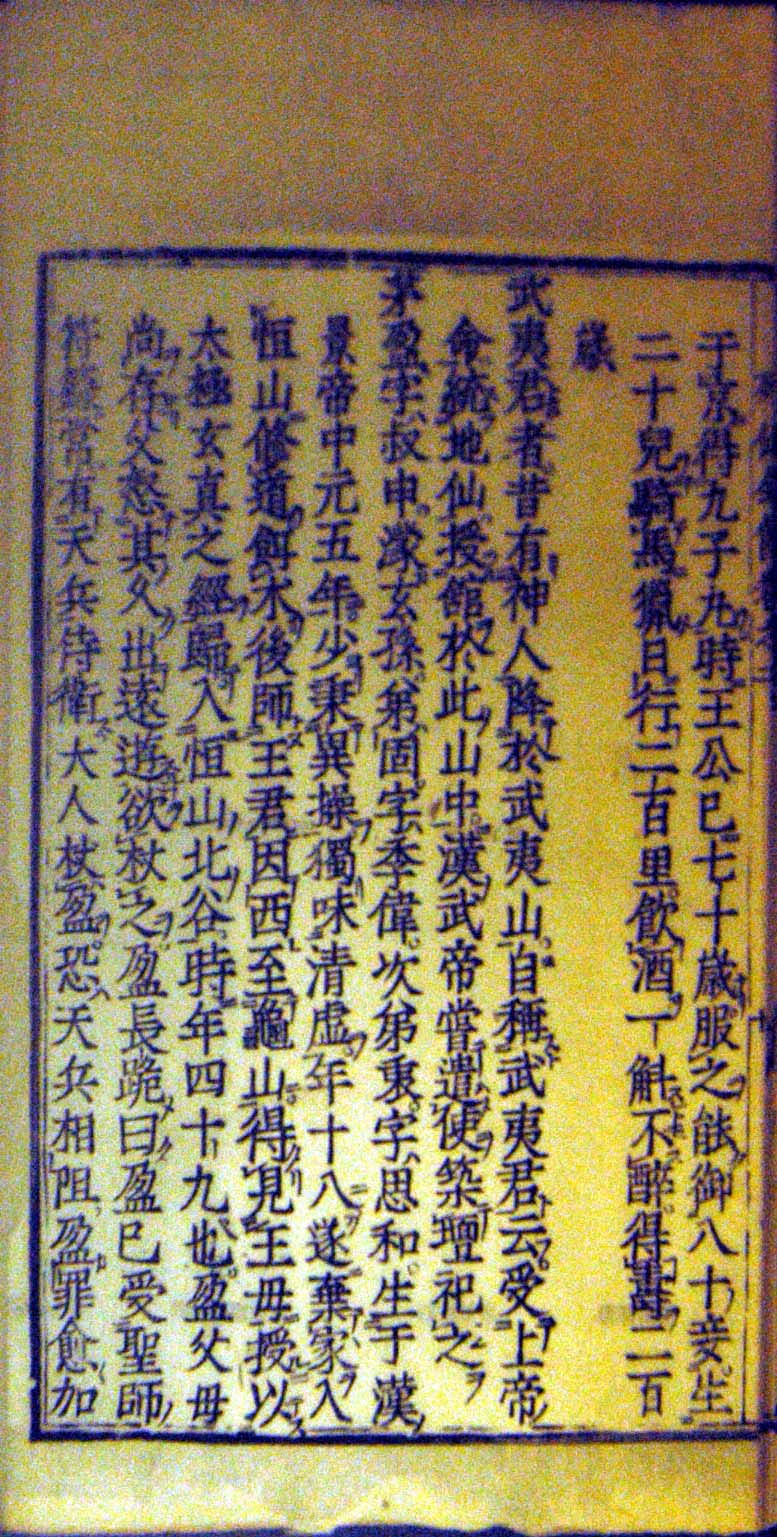 于京得九子九時王公已七十歳服之能御八十妾生
二十兒騎馬獵日行二百里飲酒一斛不醉得壽二百
歳
武夷君者昔有神人降於武夷山自稱武夷君云受上帝
命統地仙授館於此山中漢武帝嘗遣使築壇祀之
茅盈字叔申濛玄孫弟固字季偉次弟衷字思和生于漢
景帝中元五年少秉異操獨味清虛年十八遂棄家入
恒山修道餌朮後師王君因西至龜山得見王母授以
太極玄真之經歸入恒山北谷時年四十九也盈父母
尚存父怒其久出遠遊欲杖之盈長跪曰盈已受聖師
符籙常有天兵侍衛大人杖盈恐天兵相阻盈罪愈加